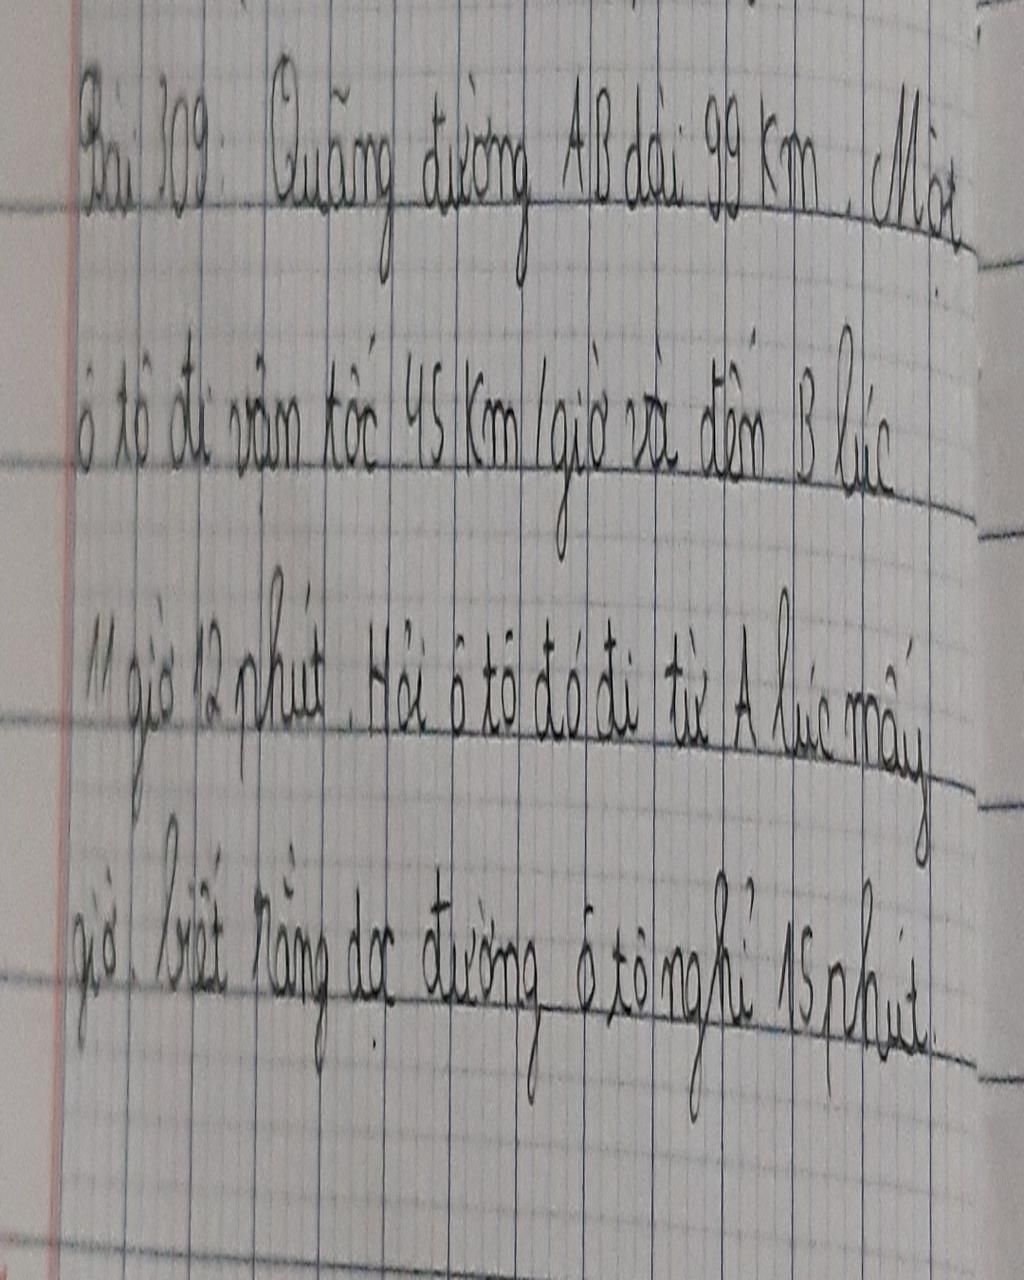 Bài 309: Quãng đường AB dài 99 Km. Một
ô tô đi vận tốc 45 Km/giờ và đến B lúc
11 giờ 12 phút. Hỏi ô tô đó đi từ A lúc mấy
giờ. biết rằng dọc đường ô tô nghỉ 15 phút.